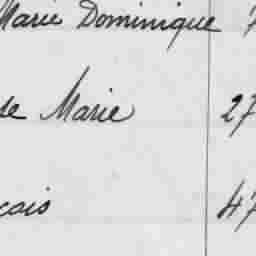 Marie Dominique 7
de Marie 27
çois 47